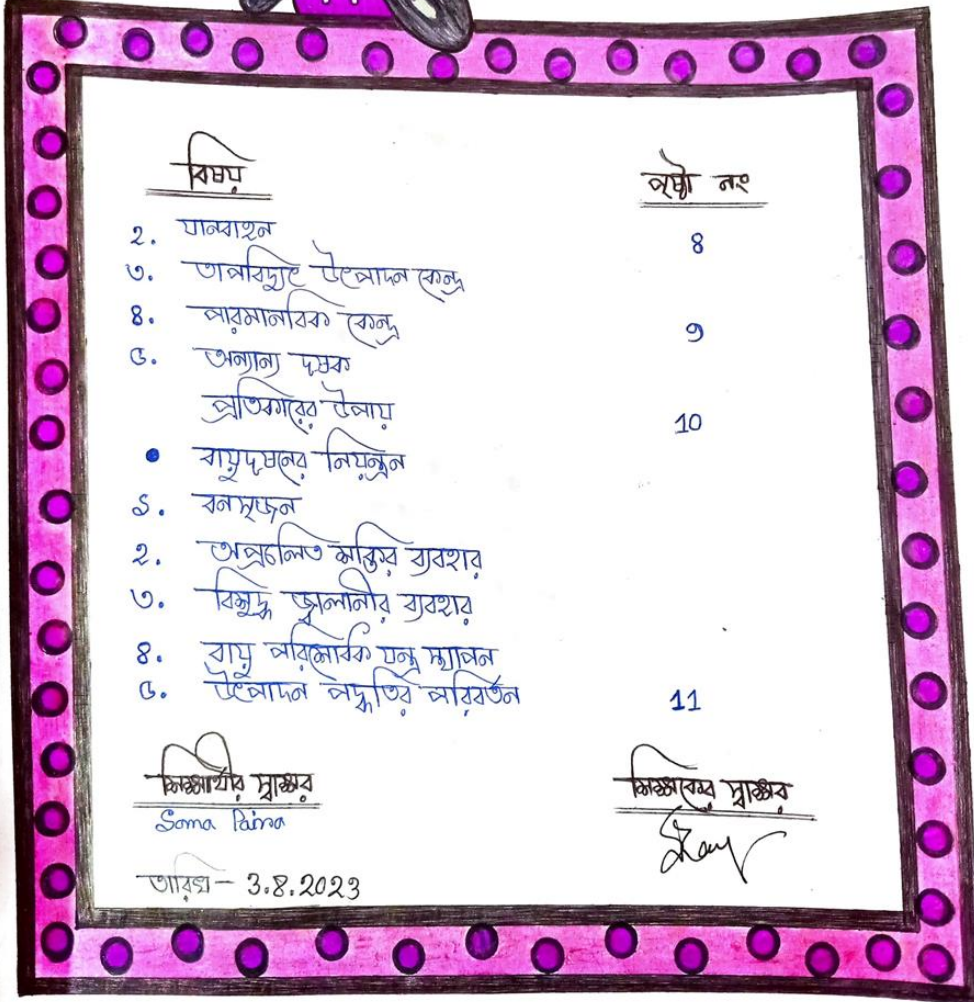 বিষয় পৃষ্ঠা নং
২. যানবাহন 8
৩. তাপবিদ্যুৎ উৎপাদন কেন্দ্র
৪. পারমানবিক কেন্দ্র 9
৫. অন্যান্য দূষক
প্রতিকারের উপায় 10
• বায়ুদূষনের নিয়ন্ত্রন
১. বনসৃজন
২. অপ্রচলিত শক্তির ব্যবহার
৩. বিশুদ্ধ জ্বালানীর ব্যবহার
৪. বায়ু পরিশোধক যন্ত্র স্থাপন
৫. উৎপাদন পদ্ধতির পরিবর্তন 11
শিক্ষার্থীর স্বাক্ষর শিক্ষকের স্বাক্ষর
Soma Paira
তারিখ - 3.8.2023